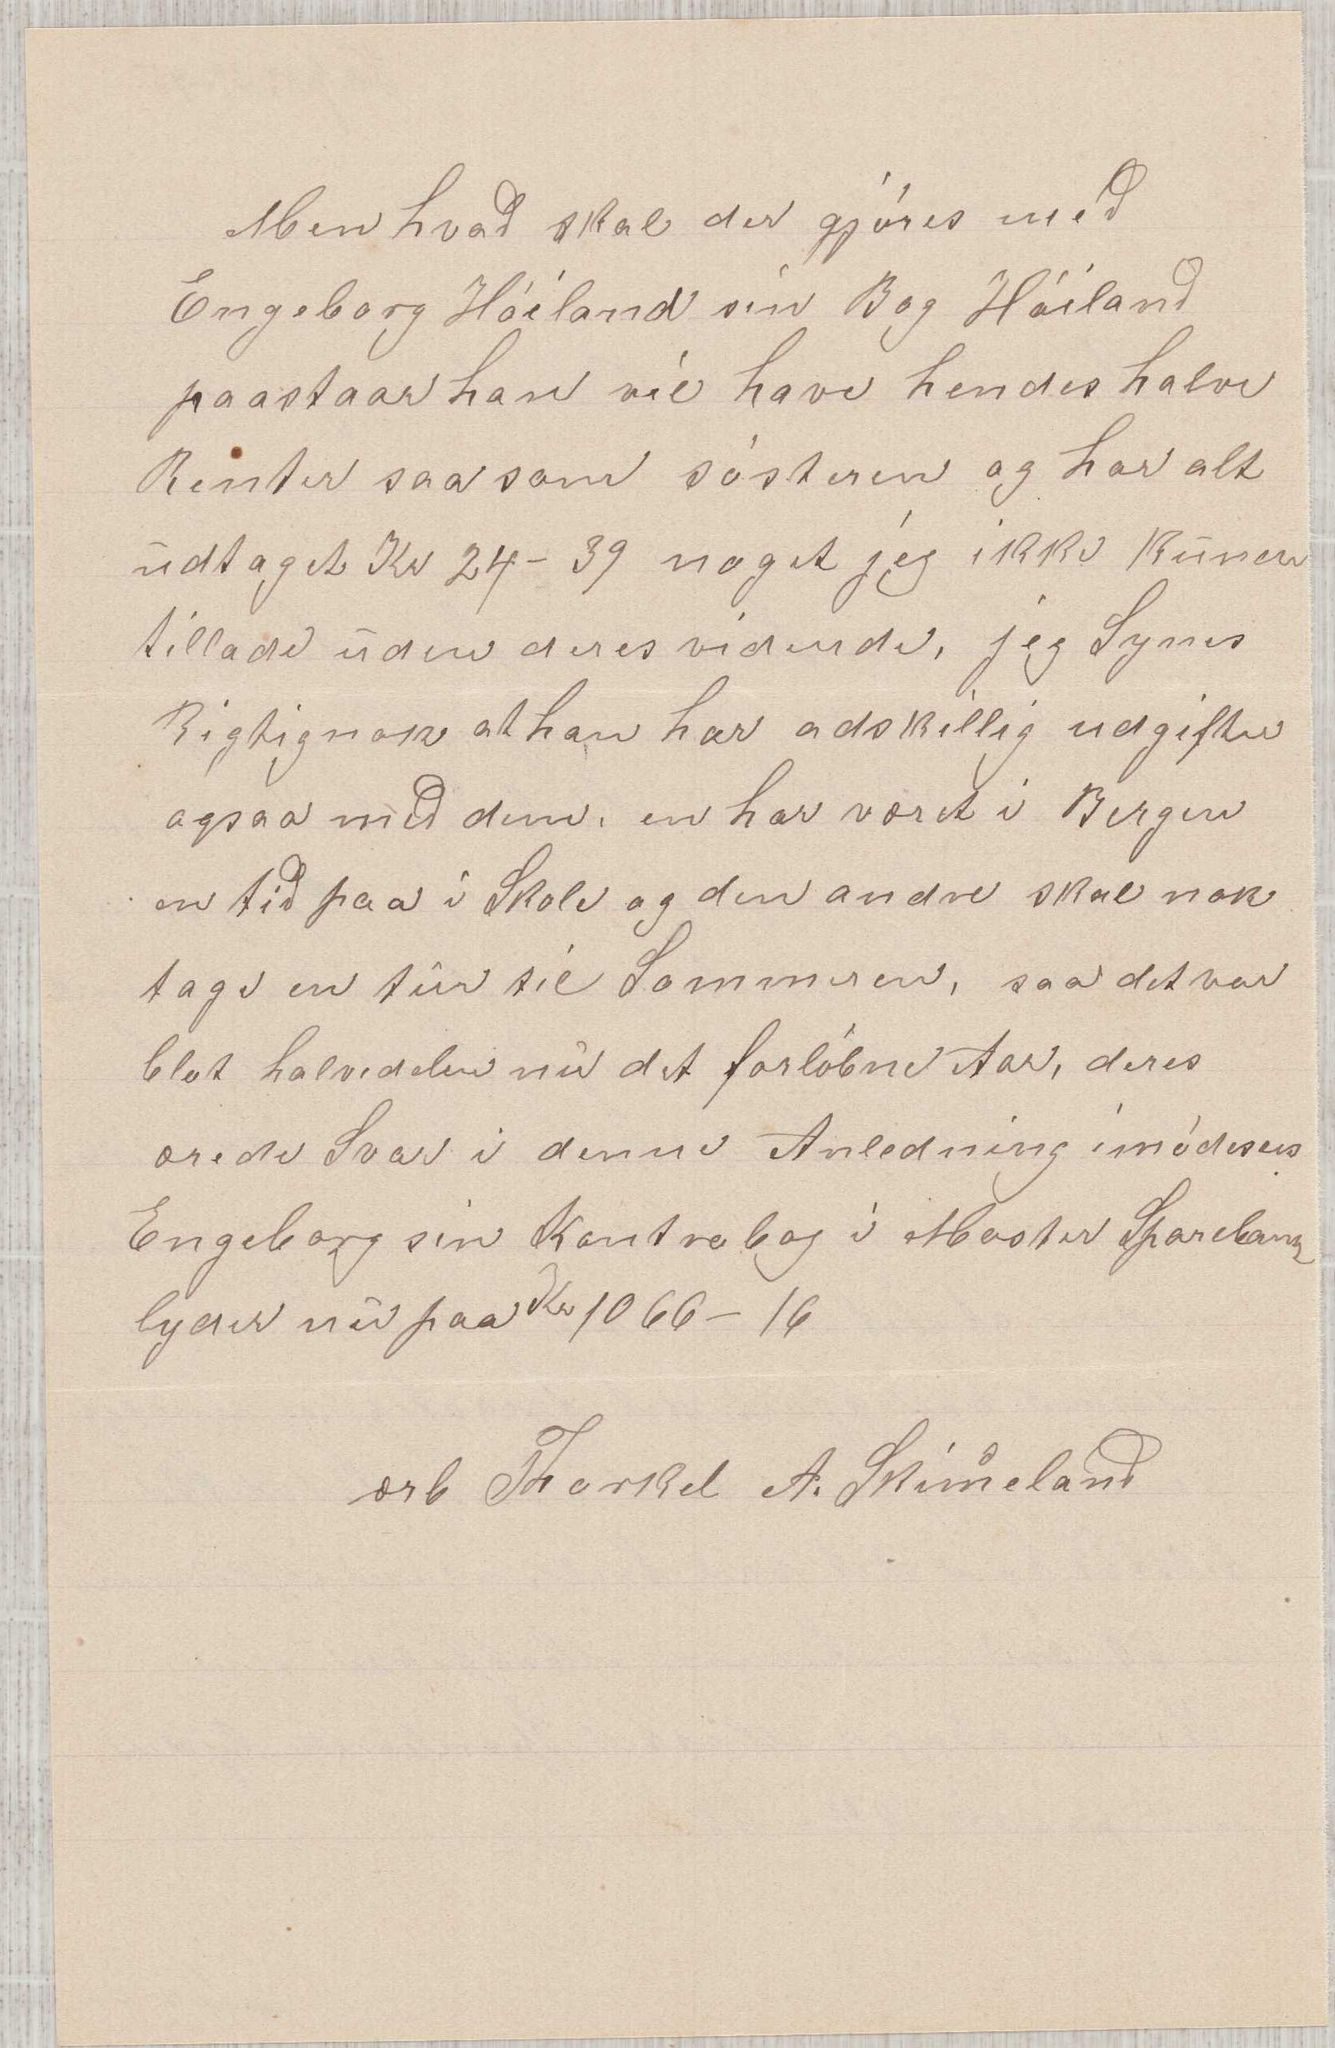 Men hvad skal der gjöres med
Engeborg Höiland sin Bog Höiland
paastaar han vil have hendes halve
Renter saasom sösteren og har alt
udtaget Kr 24-39 noget jeg ikke kunde
tillade uden deres vidende, jeg Synes
Rigtignok at han har adskillig udgifter
ogsaa med dem, en har været i Bergen
en tid paa i Skole og den andre skal nok
tage en tur til Sommeren, saa det var
blot halvedelen nu det forlöbne Aar, deres
ærede Svar i denne Anledning imödesees
Engeborg sin Kontrabog i Moster Sparebank
lyder nu paa Kr 1066-16
ærb Thorkel A. Skimeland